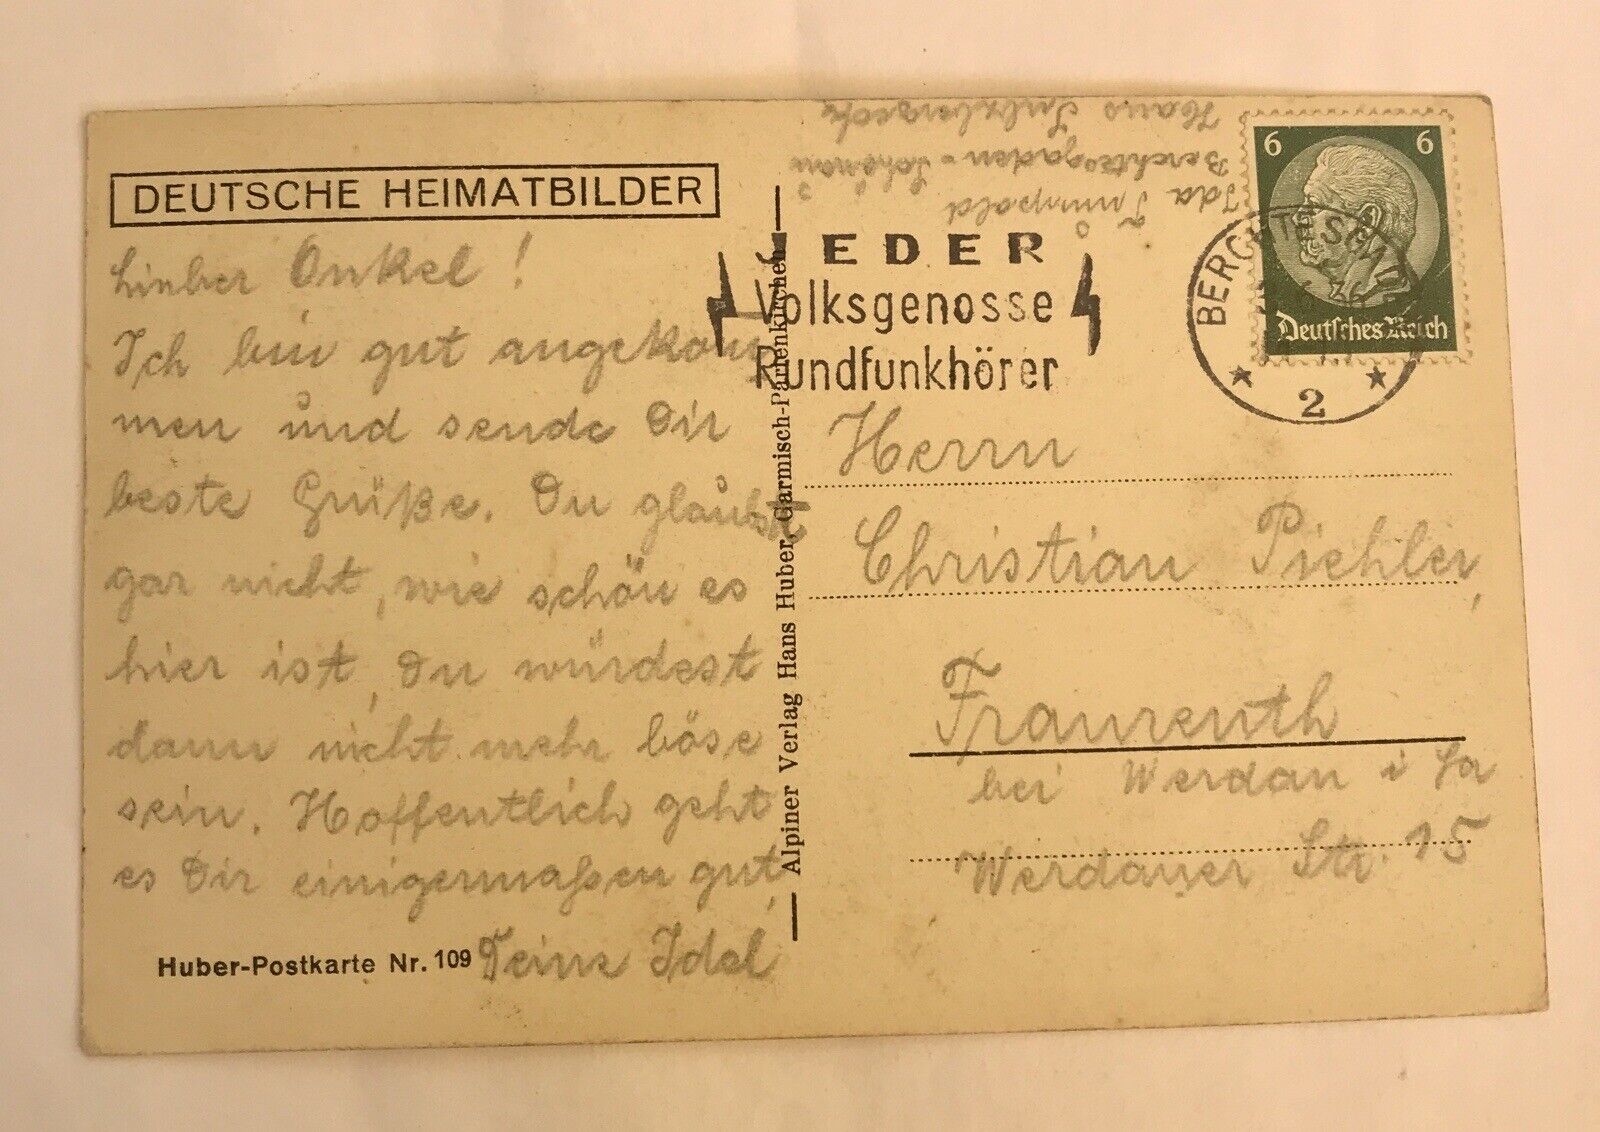 DEUTSCHE HEIMATBILDER
Lieber Onkel!
Ich bin gut angekom
men und sende Dir
beste Grüße. Du glaubst
gar nicht, wie schön es
hier ist, Du würdest
dann nicht mehr böse
sein. Hoffentlich geht
es Dir einigermaßen gut,
Deine Idel
Huber-Postkarte Nr. 109
Alpiner Verlag Hans Huber, Garmisch-Partenkirchen
Ida
Berchtesgaden - Schönau
Haus
JEDER
Volksgenosse
Rundfunkhörer
6 6
Deutsches Reich
BERCHTESGADEN
2
Herrn
Christian Piehler,
Fraureuth
bei Werdau i Sa
Werdauer Str. 15